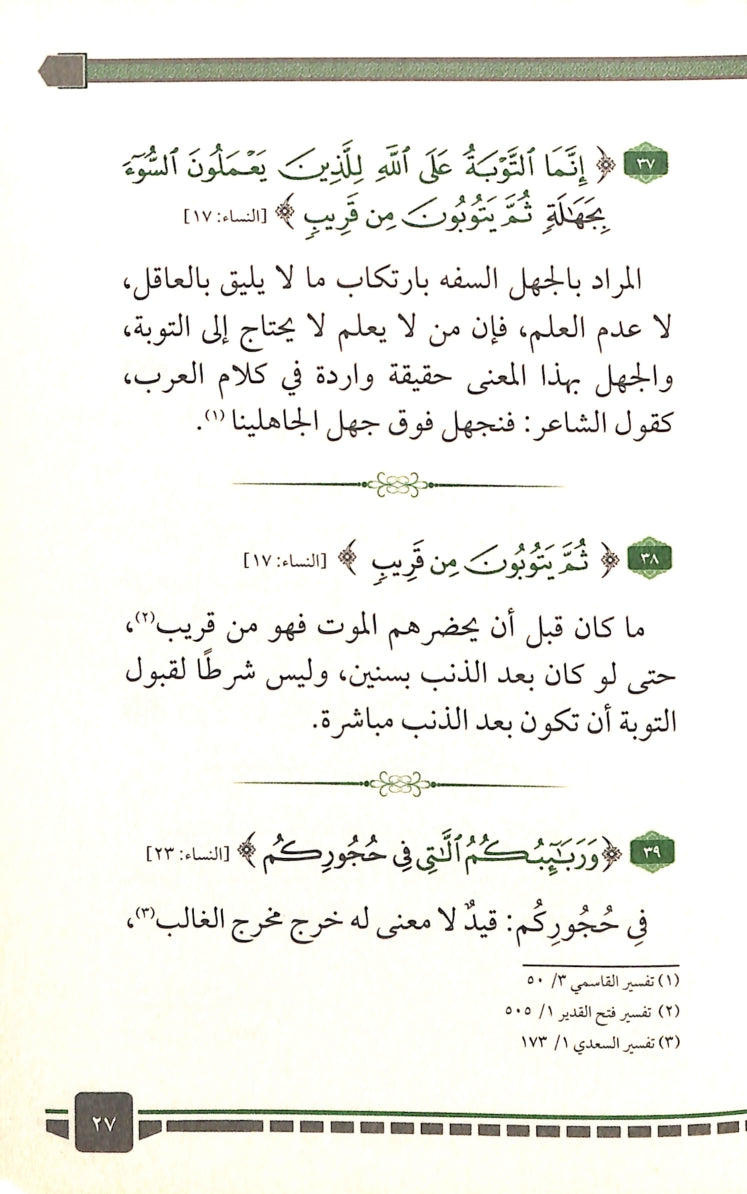 ٣٧ ﴿ إِنَّمَا ٱلتَّوْبَةُ عَلَى ٱللَّهِ لِلَّذِينَ يَعْمَلُونَ ٱلسُّوٓءَ
بِجَهَٰلَةٖ ثُمَّ يَتُوبُونَ مِن قَرِيبٖ ﴾ [النساء: ١٧]
المراد بالجهل السفه بارتكاب ما لا يليق بالعاقل،
لا عدم العلم، فإن من لا يعلم لا يحتاج إلى التوبة،
والجهل بهذا المعنى حقيقة واردة في كلام العرب،
كقول الشاعر: فنجهل فوق جهل الجاهلينا (١).
٣٨ ﴿ ثُمَّ يَتُوبُونَ مِن قَرِيبٖ ﴾ [النساء: ١٧]
ما كان قبل أن يحضرهم الموت فهو من قريب(٢)،
حتى لو كان بعد الذنب بسنين، وليس شرطًا لقبول
التوبة أن تكون بعد الذنب مباشرة.
٣٩ ﴿وَرَبَٰٓئِبُكُمُ ٱلَّٰتِي فِي حُجُورِكُم ﴾ [النساء: ٢٣]
فِي حُجُورِكُم: قيدٌ لا معنى له خرج مخرج الغالب(٣)،
(١) تفسير القاسمي ٣/ ٥٠
(٢) تفسير فتح القدير ١/ ٥٠٥
(٣) تفسير السعدي ١/ ١٧٣
٢٧